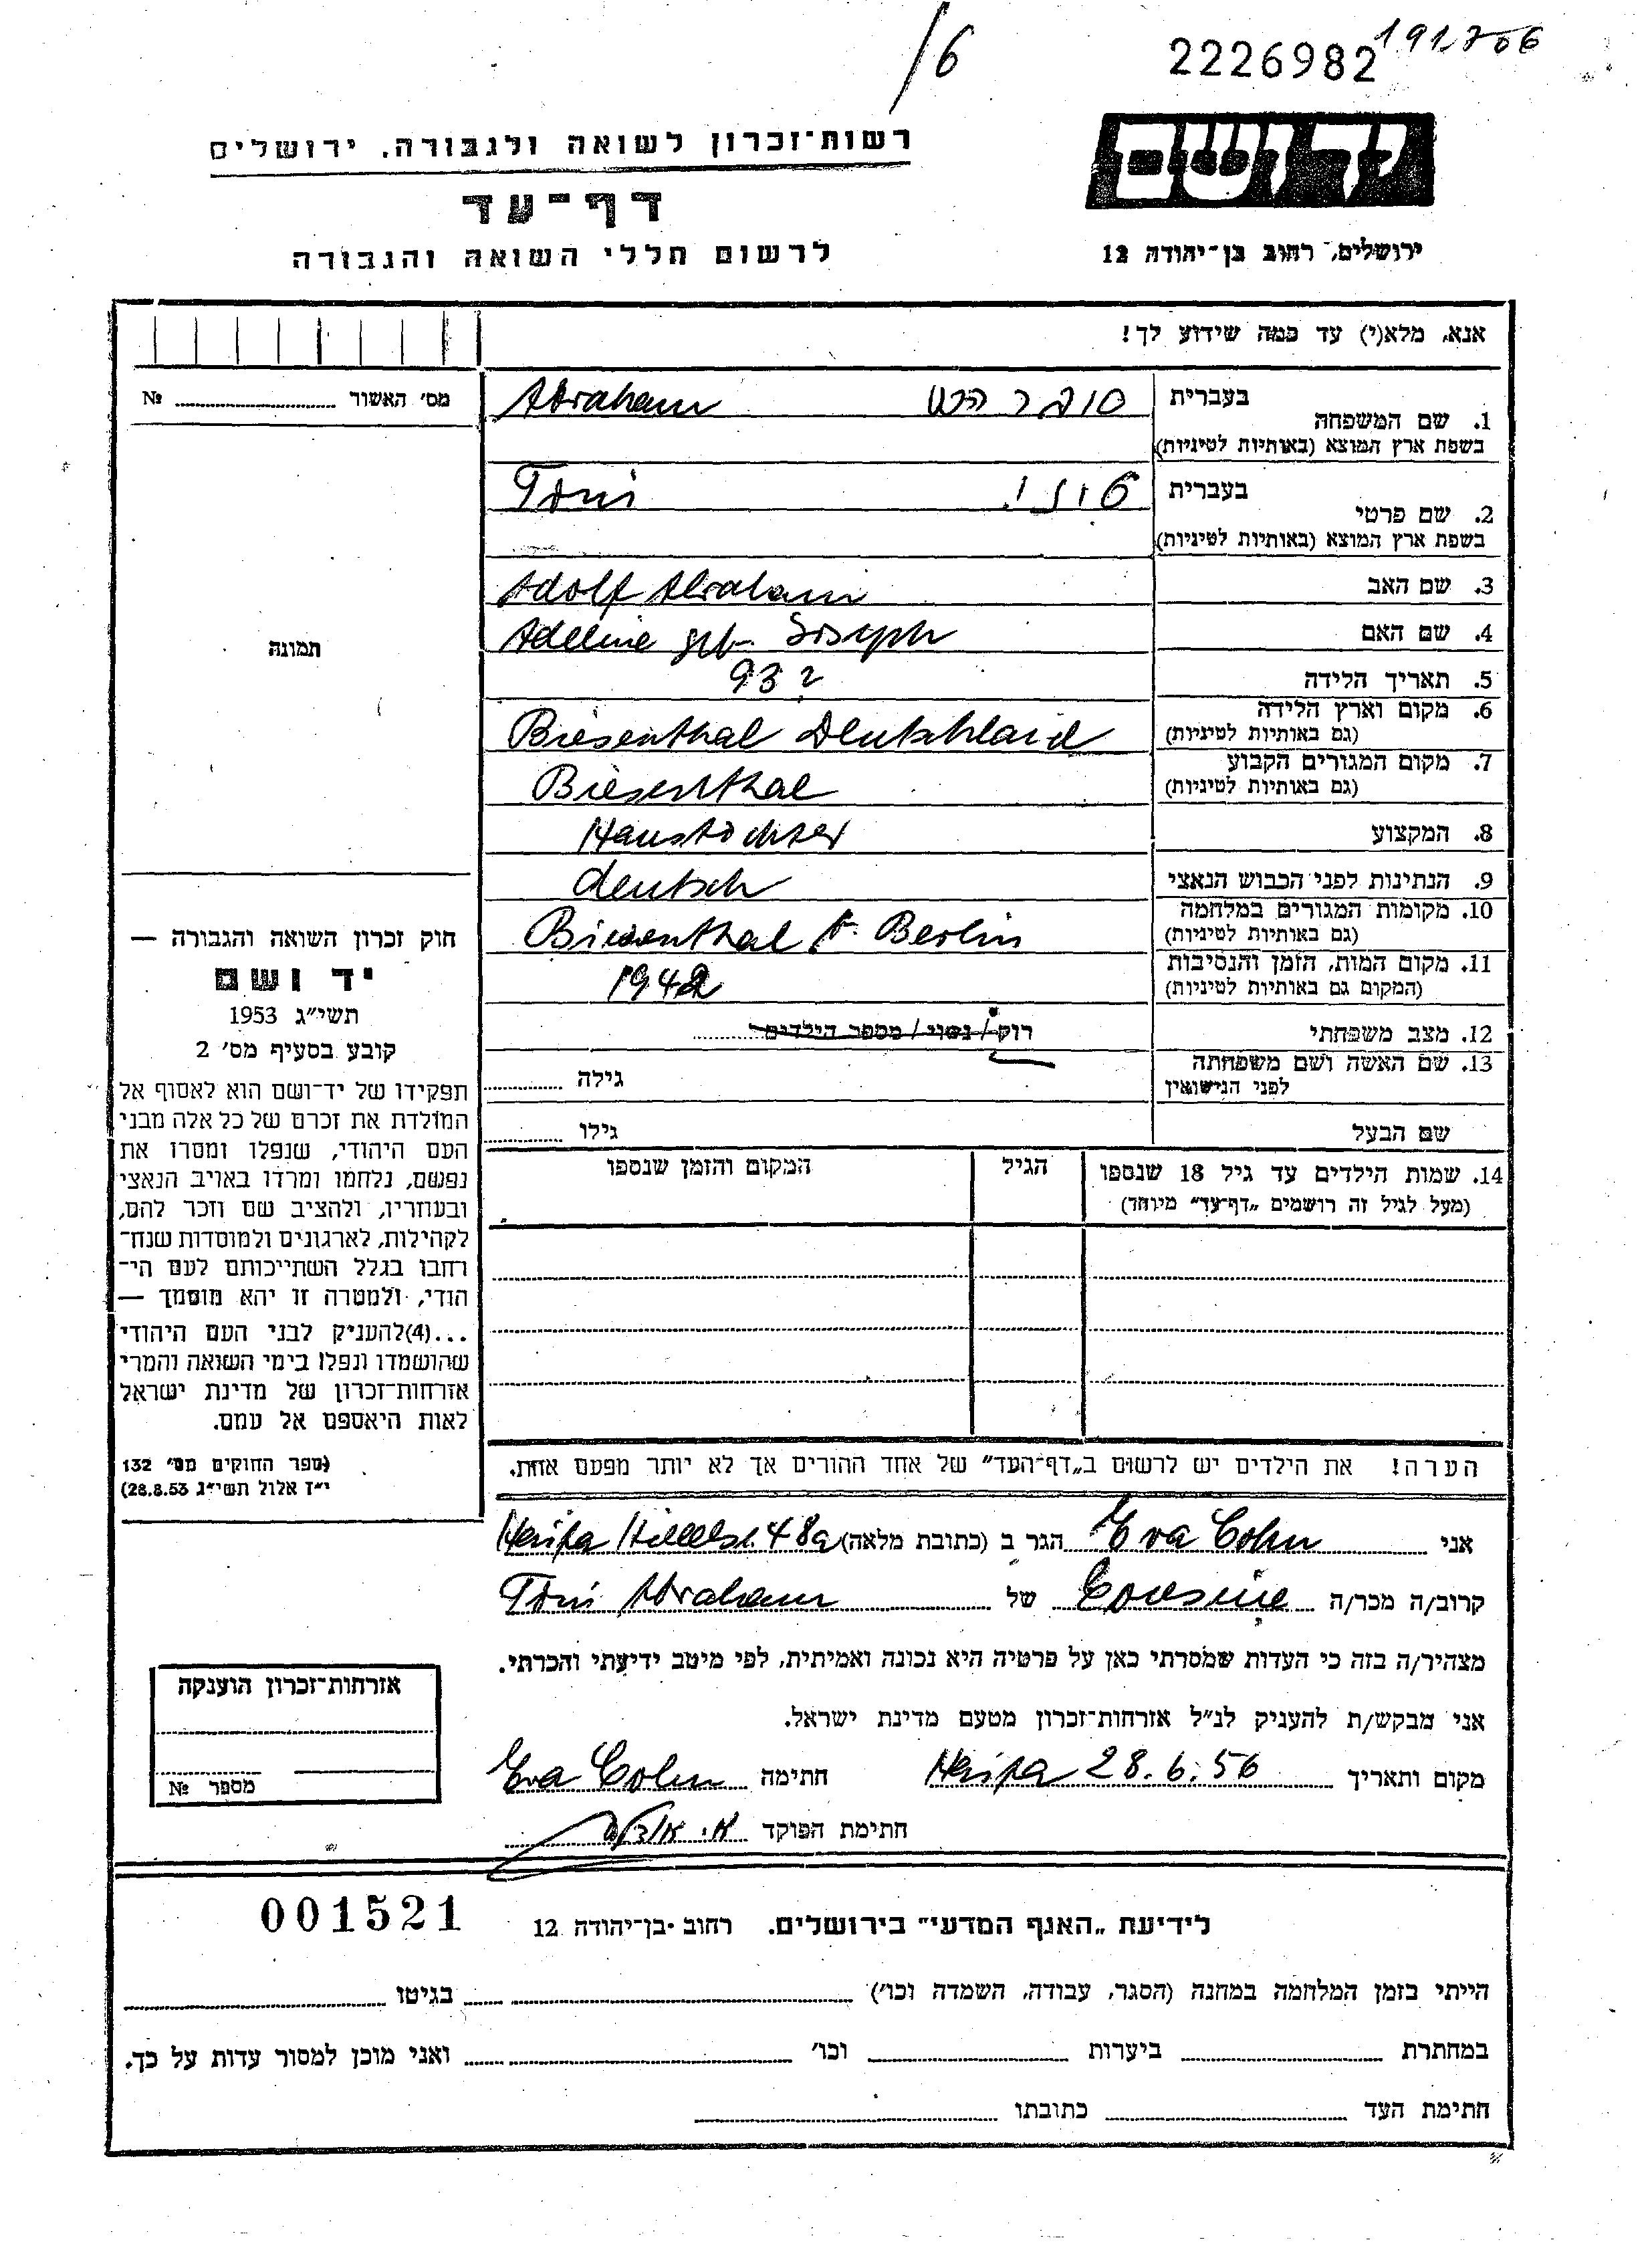 /6
2226982
191706
ידושם
ירושלים, רחוב בן־יהודה 12
רשות־זכרון לשואה ולגבורה, ירושלים
דף־עד
לרשום חללי השואה והגבורה
אנא, מלא(י) עד כמה שידוע לך!
מס׳ האשור ... №
תמונה
חוק זכרון השואה והגבורה —
יד ושם
תשי״ג 1953
קובע בסעיף מס׳ 2
תפקידו של יד־ושם הוא לאסוף אל
המולדת את זכרם של כל אלה מבני
העם היהודי, שנפלו ומסרו את
נפשם, נלחמו ומרדו באויב הנאצי
ובעוזריו, ולהציב שם וזכר להם,
לקהילות, לארגונים ולמוסדות שנח־
רבו בגלל השתייכותם לעם הי־
הודי, ולמטרה זו יהא מוסמך —
...(4)להעניק לבני העם היהודי
שהושמדו ונפלו בימי השואה והמרי
אזרחות־זכרון של מדינת ישראל
לאות היאספם אל עמם.
(ספר החוקים מס׳ 132
י״ז אלול תשי״ג 28.8.53)
בעברית
1. שם המשפחה Abraham
בשפת ארץ המוצא (באותיות לטיניות)
בעברית טוני
2. שם פרטי Toni
בשפת ארץ המוצא (באותיות לטיניות)
3. שם האב Adolf Abraham
4. שם האם Adeline geb. Joseph
5. תאריך הלידה 93?
6. מקום וארץ הלידה Biesenthal Deutschland
(גם באותיות לטיניות)
7. מקום המגורים הקבוע Biesenthal
(גם באותיות לטיניות)
8. המקצוע Haustochter
9. הנתינות לפני הכבוש הנאצי deutsch
10. מקומות המגורים במלחמה Biesenthal b. Berlin
(גם באותיות לטיניות)
11. מקום המות, הזמן והנסיבות 1942
(המקום גם באותיות לטיניות)
12. מצב משפחתי רוק/נשוי/מספר הילדים
13. שם האשה ושם משפחתה גילה
לפני הנישואין
שם הבעל גילו
14. שמות הילדים עד גיל 18 שנספו הגיל המקום והזמן שנספו
(מעל לגיל זה רושמים „דף־עד״ מיוחד)
הערה! את הילדים יש לרשום ב„דף־העד״ של אחד ההורים אך לא יותר מפעם אחת.
אני Eva Cohn הגר ב (כתובת מלאה) Haifa Hillelst. 48a
קרוב/ה מכר/ה Cousine של Toni Abraham
מצהיר/ה בזה כי העדות שמסרתי כאן על פרטיה היא נכונה ואמיתית, לפי מיטב ידיעתי והכרתי.
אני מבקש/ת להעניק לנ״ל אזרחות־זכרון מטעם מדינת ישראל.
מקום ותאריך Haifa 28.6.56 חתימה Eva Cohn
חתימת הפוקד
אזרחות־זכרון הוענקה
מספר №
001521
לידיעת „האגף המדעי״ בירושלים. רחוב בן־יהודה 12
הייתי בזמן המלחמה במחנה (הסגר, עבודה, השמדה וכו׳) בגיטו
במחתרת ביערות וכו׳ ואני מוכן למסור עדות על כך.
חתימת העד כתובתו